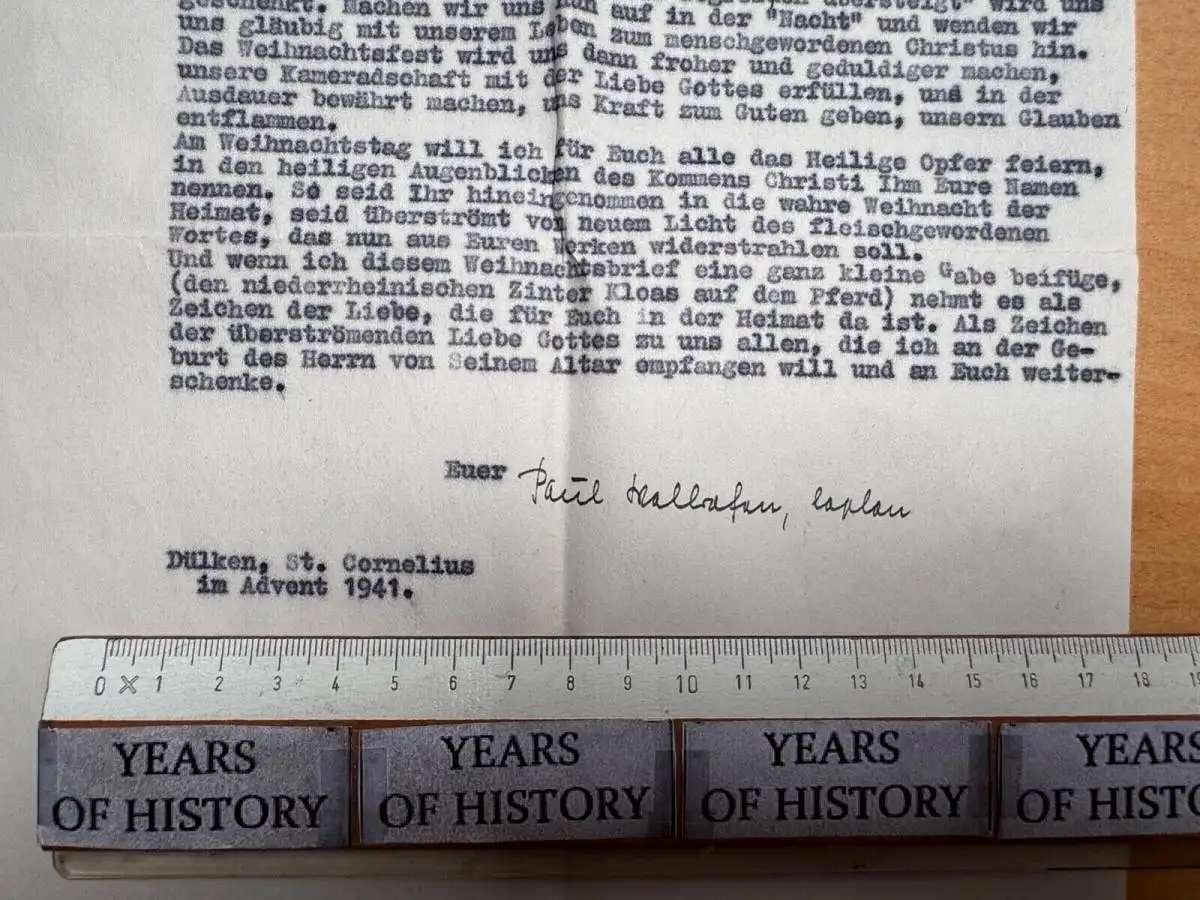 geschenkt. Machen wir uns nun auf in der "Nacht" und wenden wir
uns gläubig mit unserem Leben zum menschgewordenen Christus hin.
Das Weihnachtsfest wird uns dann froher und geduldiger machen,
unsere Kameradschaft mit der Liebe Gottes erfüllen, und in der
Ausdauer bewährt machen, uns Kraft zum Guten geben, unsern Glauben
entflammen.
Am Weihnachtstag will ich für Euch alle das Heilige Opfer feiern,
in den heiligen Augenblicken des Kommens Christi Ihm Eure Namen
nennen. So seid Ihr hineingenommen in die wahre Weihnacht der
Heimat, seid überströmt von neuem Licht des fleischgewordenen
Wortes, das nun aus Euren Werken widerstrahlen soll.
Und wenn ich diesem Weihnachtsbrief eine ganz kleine Gabe beifüge,
(den niederrheinischen Zinter Kloas auf dem Pferd) nehmt es als
Zeichen der Liebe, die für Euch in der Heimat da ist. Als Zeichen
der überströmenden Liebe Gottes zu uns allen, die ich an der Ge-
burt des Herrn von Seinem Altar empfangen will und an Euch weiter-
schenke.
Euer Paul
Dülken, St. Cornelius
im Advent 1941.
0 1 2 3 4 5 6 7 8 9 10 11 12 13 14 15 16 17 18 19
YEARS YEARS YEARS YEARS
OF HISTORY OF HISTORY OF HISTORY OF HISTO